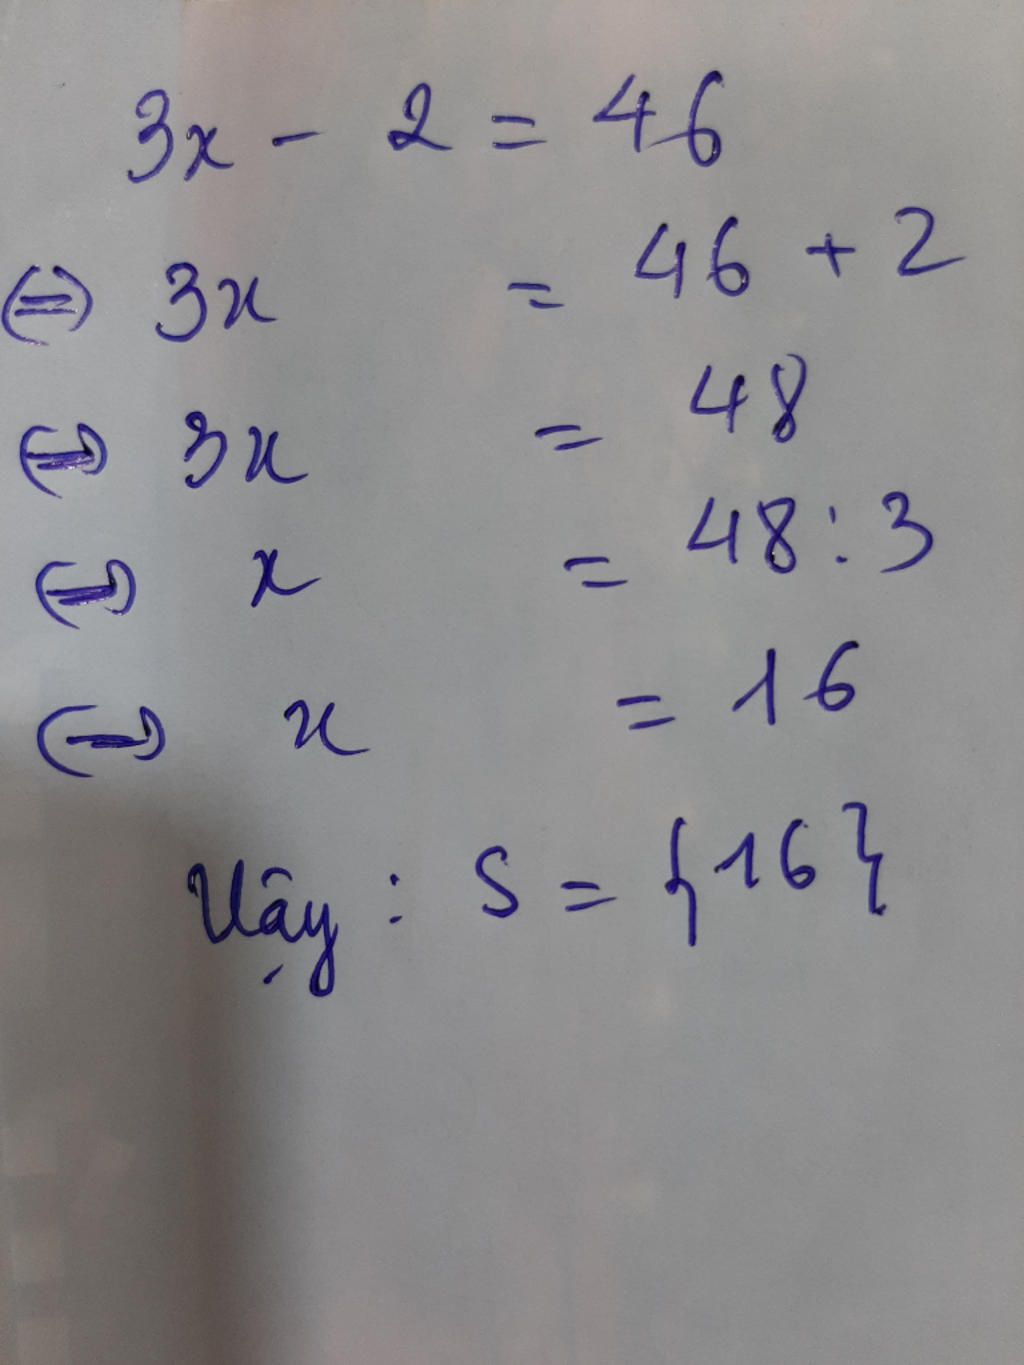 3x - 2 = 46
⇔ 3x = 46 + 2
⇔ 3x = 48
⇔ x = 48 : 3
⇔ x = 16
Vậy : S = {16}